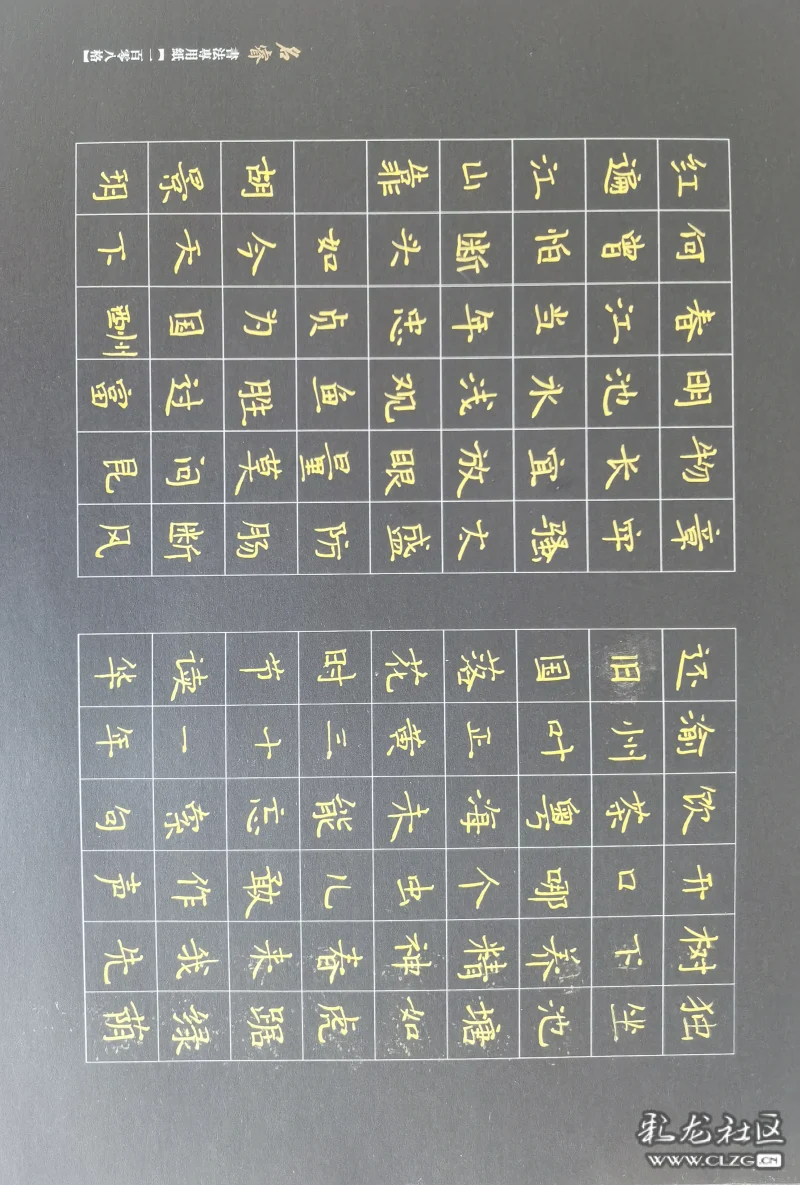 名睿 書法專用紙【一百零八格】
独坐池塘如虎踞绿荫
树下养精神春来我先
开口哪个虫儿敢作声
饮茶粤海未能忘索句
渝州叶正黄三十一年
还旧国落花时节读华
章牢骚太盛防肠断风
物长宜放眼量莫问昆
明池水浅观鱼胜过富
春江当年忠贞为国酬
何曾怕断头如今天下
红遍江山靠 胡景玥
彩龙社区
WWW.CLZG.CN